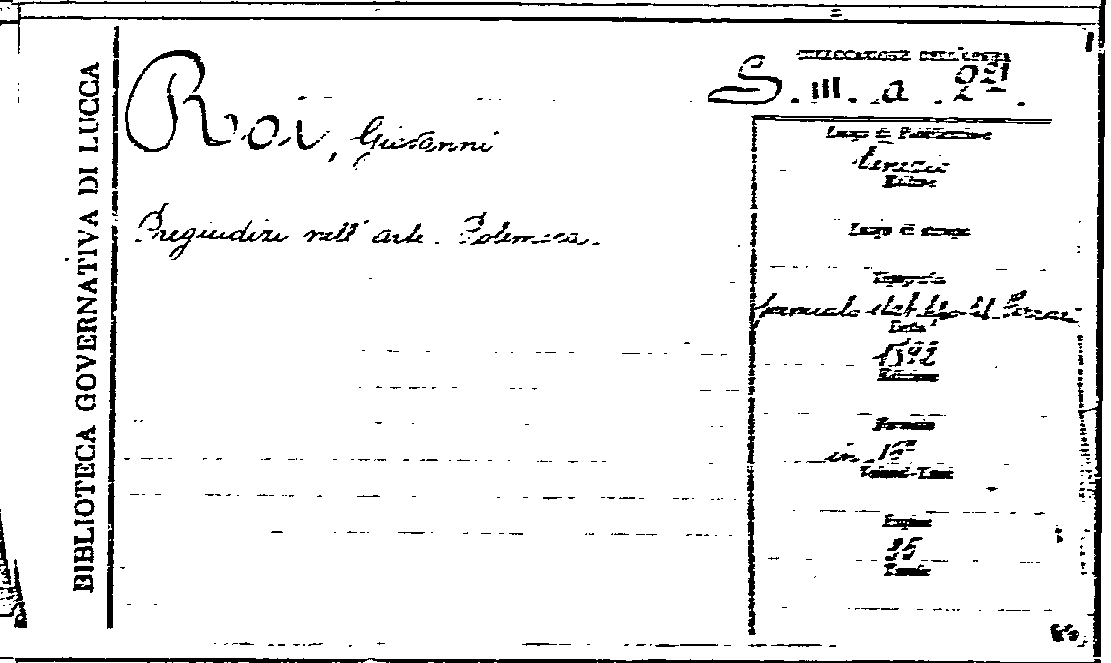 BIBLIOTECA GOVERNATIVA DI LUCCA
COLLOCAZIONE DELL'OPERA
S. III. a. 291.
Roi, Giovanni
Pregiudizi nell'arte. Polemica.
Luogo di Pubblicazione
Venezia
Editore
Luogo di stampa
Tipografia
Data
Edizione
Formato
in 16°
Volumi-Tomi
Pagine
35
Tavole